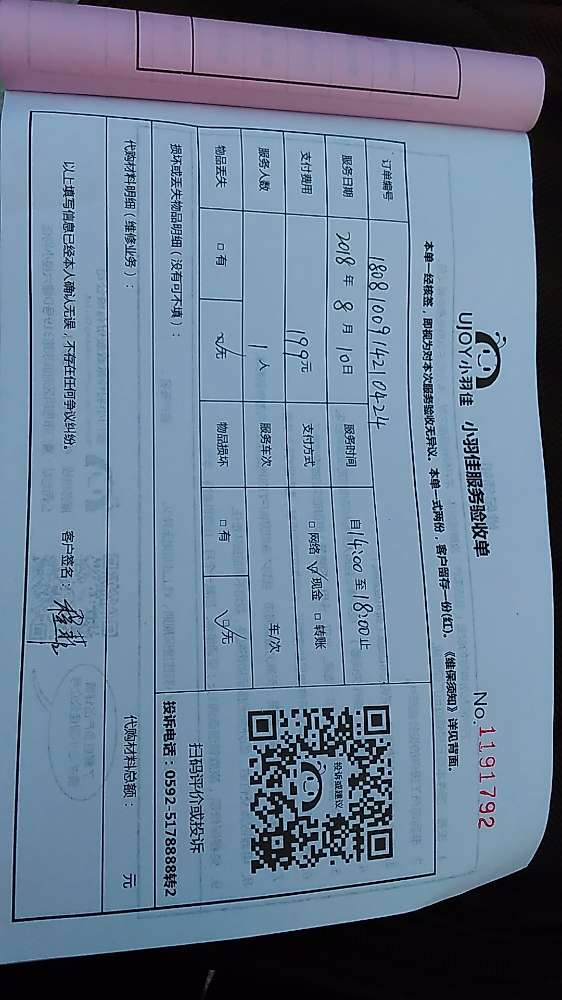 UJOY小羽佳 小羽佳服务验收单
No.1191792
本单一经核签，即视为对本次服务验收无异议。本单一式两份，客户留存一份(红)。《维保须知》详见背面。
订单编号 1808100914210424
服务日期 2018年8月10日 服务时间 自14:00至18:00止
支付费用 199元 支付方式 □网络 ☑现金 □转账
服务人数 1人 服务车次 车/次
物品丢失 □有 ☑无 物品损坏 □有 ☑无
投诉或建议
扫码评价或投诉
投诉电话：0592-5178888转2
损坏或丢失物品明细（没有可不填）：
代购材料明细（维修业务）： 代购材料总额： 元
以上填写信息已经本人确认无误，不存在任何争议纠纷。 客户签名：